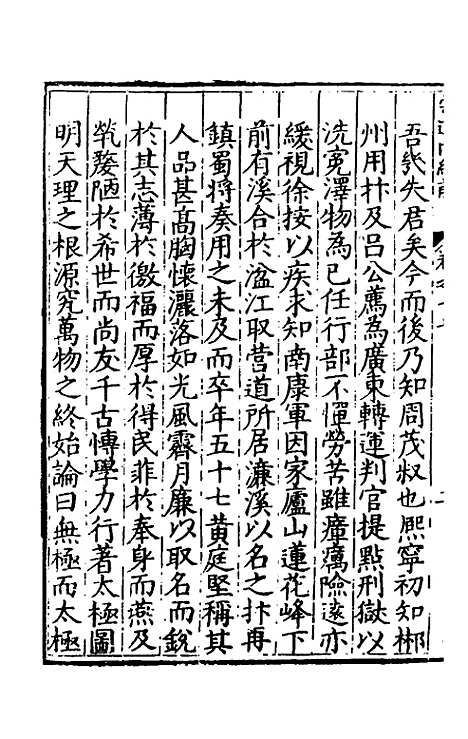 吾㡬失君矣今而後乃知周茂叔也熈寧初知郴
州用抃及吕公薦為廣東轉運判官提㸃刑獄以
洗寃澤物為已任行部不憚勞苦雖瘴癘險逺亦
緩視徐按以疾求知南康軍因家廬山蓮花峰下
前有溪合於湓江取营道所居濂溪以名之抃再
鎮蜀將奏用之未及而卒年五十七黄庭堅稱其
人品甚髙胸懷灑落如光風霽月廉以取名而銳
於其志薄於徼福而厚於得民菲於奉身而燕及
煢嫠陋於希世而尚友千古慱學力行著太極圖
明天理之根源究萬物之終始論曰無極而太極